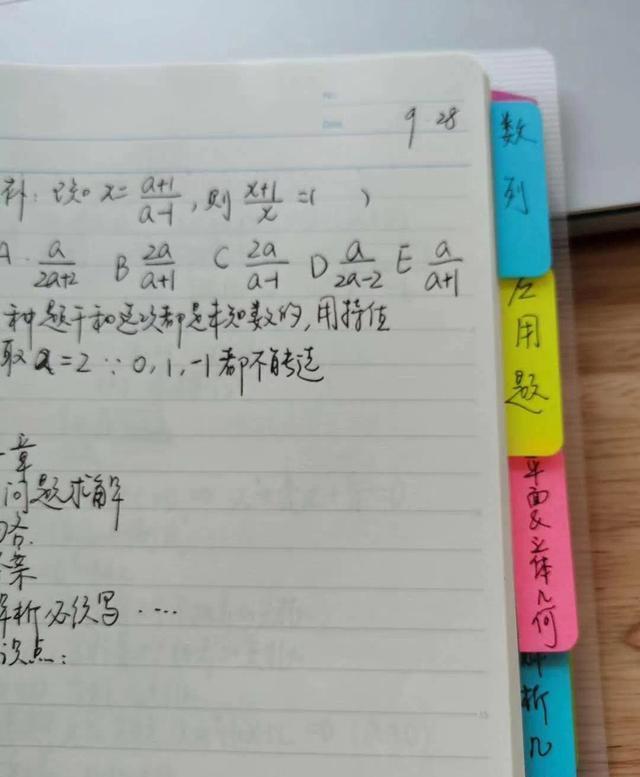 9 28
补: 已知 x = (a+1)/(a-1), 则 (x+1)/x = ( )
A. a/(2a+2) B 2a/(a+1) C 2a/(a-1) D a/(2a-2) E a/(a+1)
种题干和选项都是未知数的, 用特值
取 a = 2 ∵ 0, 1, -1 都不能选
章
问题求解
略.
答案
解析必须写 ....
识点:
数列
应用题
平面&立体几何
解析几